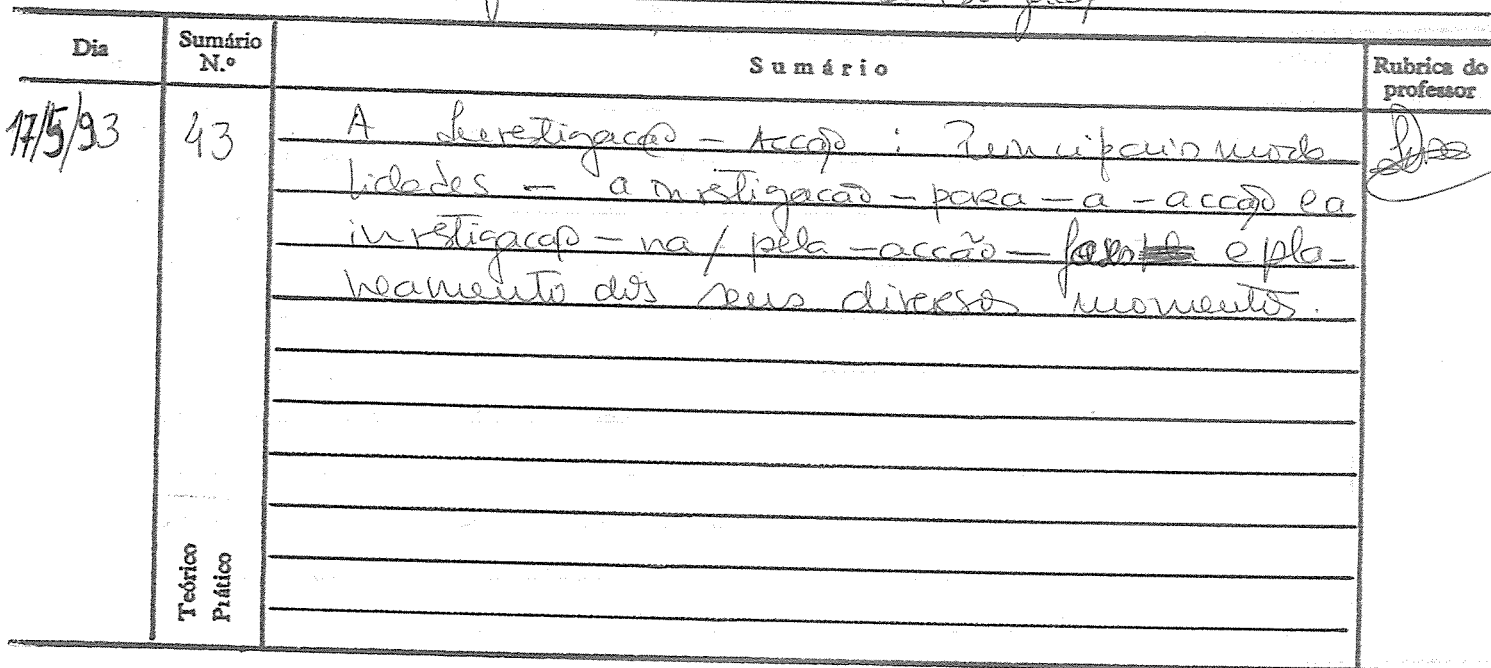 Dia Sumário N.º Sumário Rubrica do professor
17/5/93 43 A Investigação - Acção : Principais moda
lidades - a investigação - para - a - acção e a
investigação - na / pela - acção - fases e pla-
neamento dos seus diversos momentos.
Teórico
Prático